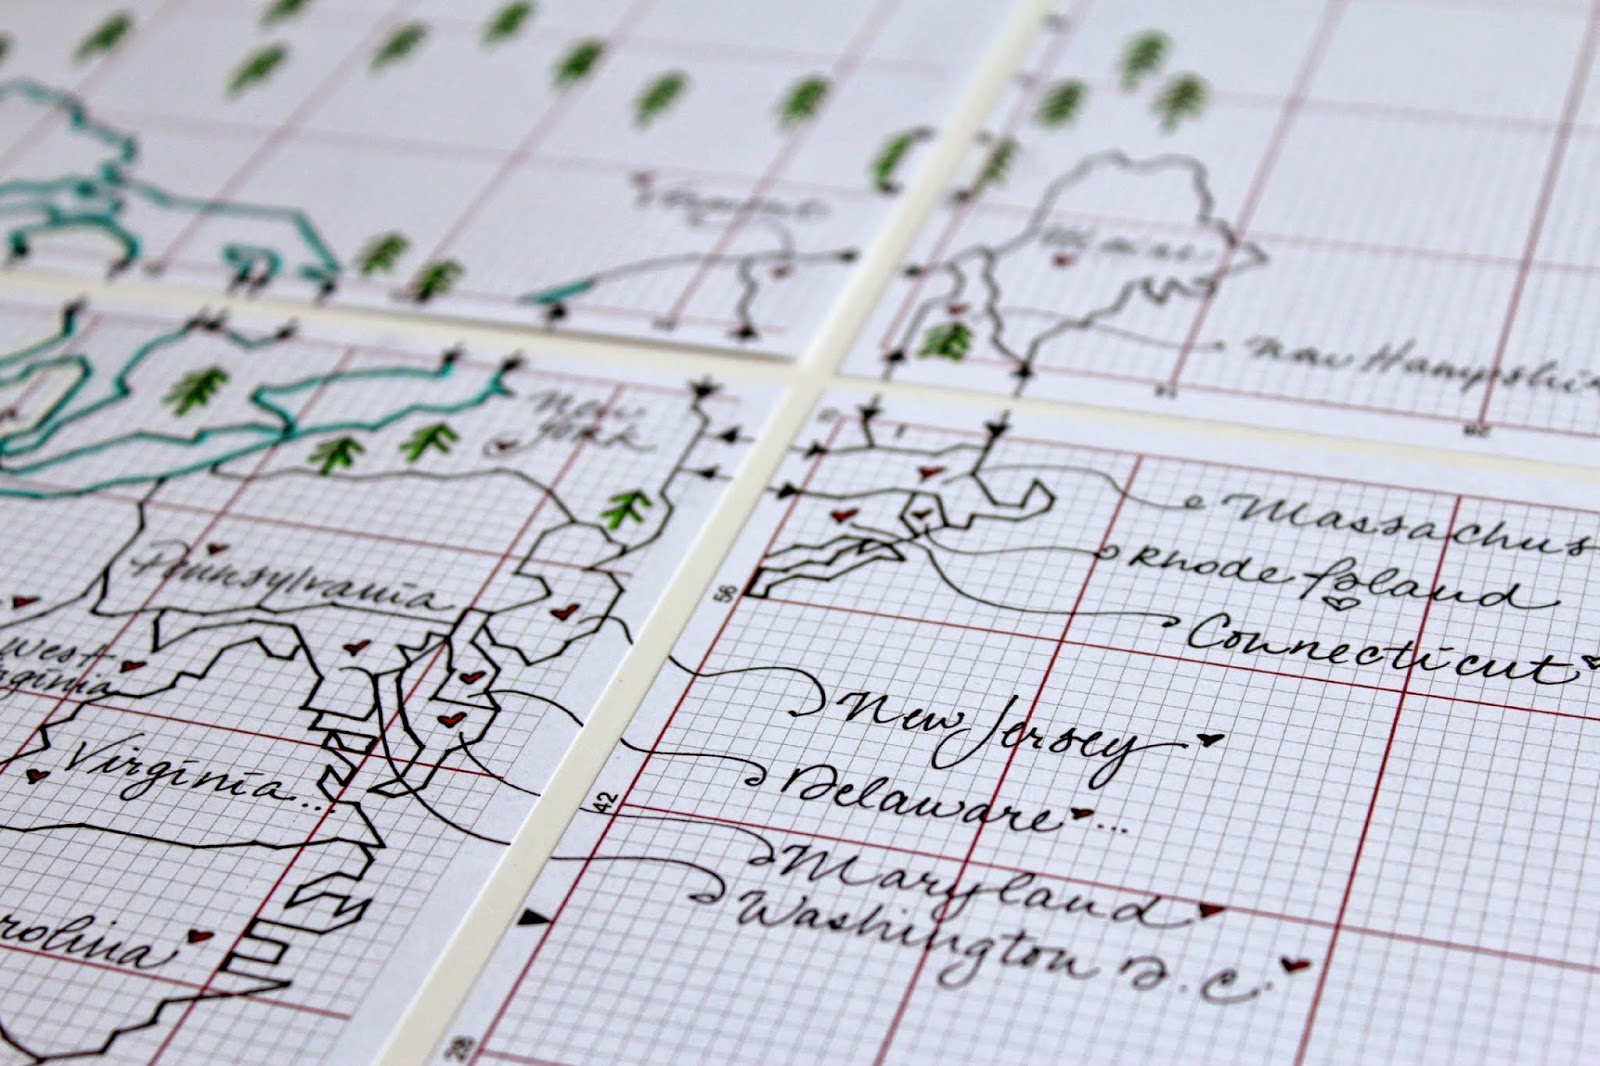 Vermont
Maine
New Hampshi
New
York
Massachus
Rhode Island
Connecticut
Pennsylvania
West
rginia
Virginia...
New Jersey
Delaware...
Maryland
Washington D.C.
rolina
56
42
28